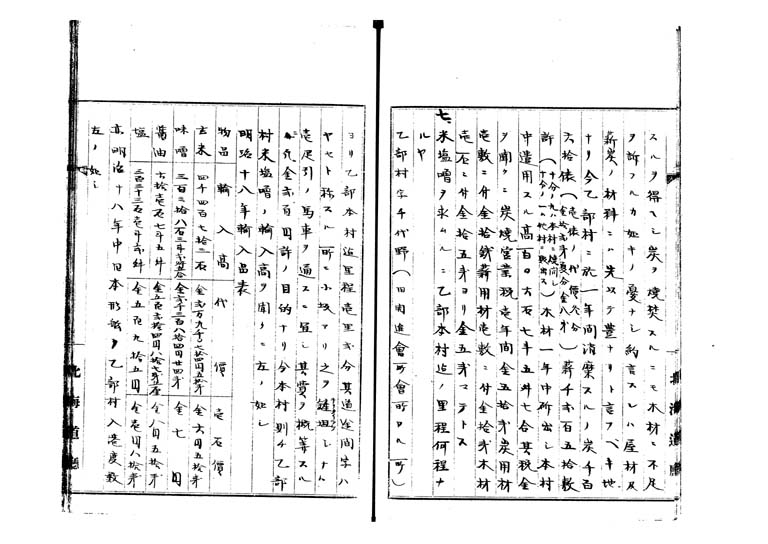 スルヲ得ヘシ炭ヲ焼焚スルニモ木材ニ不足
ヲ訴フルカ如キノ憂ナシ約言スレハ屋材及
薪炭ノ材料ニハ先以テ豊ナリト言フヘキ地
ナリ今乙部村ニ於一年間消糜スルノ炭千百
六拾俵(壱俵ノ代價八分 金拾弐貫 金八分)薪千弐百五拾敷
許(十分ノ九ハ本村ニ 十分ノ一ハ他村ニ)木材一年中所出シ本村
中遣用スル高百〇六石七斗五升七合其税金
ヲ聞クニ炭焼営業税壱年間金五拾銭炭用材
壱敷ニ付金拾銭薪用材壱敷ニ付金拾銭木材
壱石ニ付金拾五銭ヨリ金五銭マテトス
七、米塩噌ヲ求ムルニ乙部本村迄ノ里程何程ナ
ルヤ
乙部村字千代野(旧開進會所會所ヨリ)
ヨリ乙部本村迄里程壱里弐分其道全間字ハ
ヤセト称スル所ニ小坂アリ之ヲ シナハ
壱疋引ノ馬車ヲ通スニ足シ其費ヲ概算スル
ニ凡金弐百円許ノ目的ナリ今本村則チ乙部
村米塩噌ノ輸入高ヲ聞クニ左ノ如シ
明治十八年輸入品表
物品 輸入高 代價 壱石價
玄米 四千四百七拾二石 金弐万九千〇七拾四円五拾銭 金六円五拾銭
味噌 三百三拾八石三斗 金弐千三百八拾四円廿四銭 金七円
醤油 六拾壱石七斗五升 金五百弐拾四円八拾七銭五厘 金八円五拾銭
塩 三百三十三石壱斗弐升 金五百九拾五円 金壱円八拾銭
亦明治十八年中日本形船ヲ乙部村入港度数
左ノ如シ
北海道廳
北海道廳